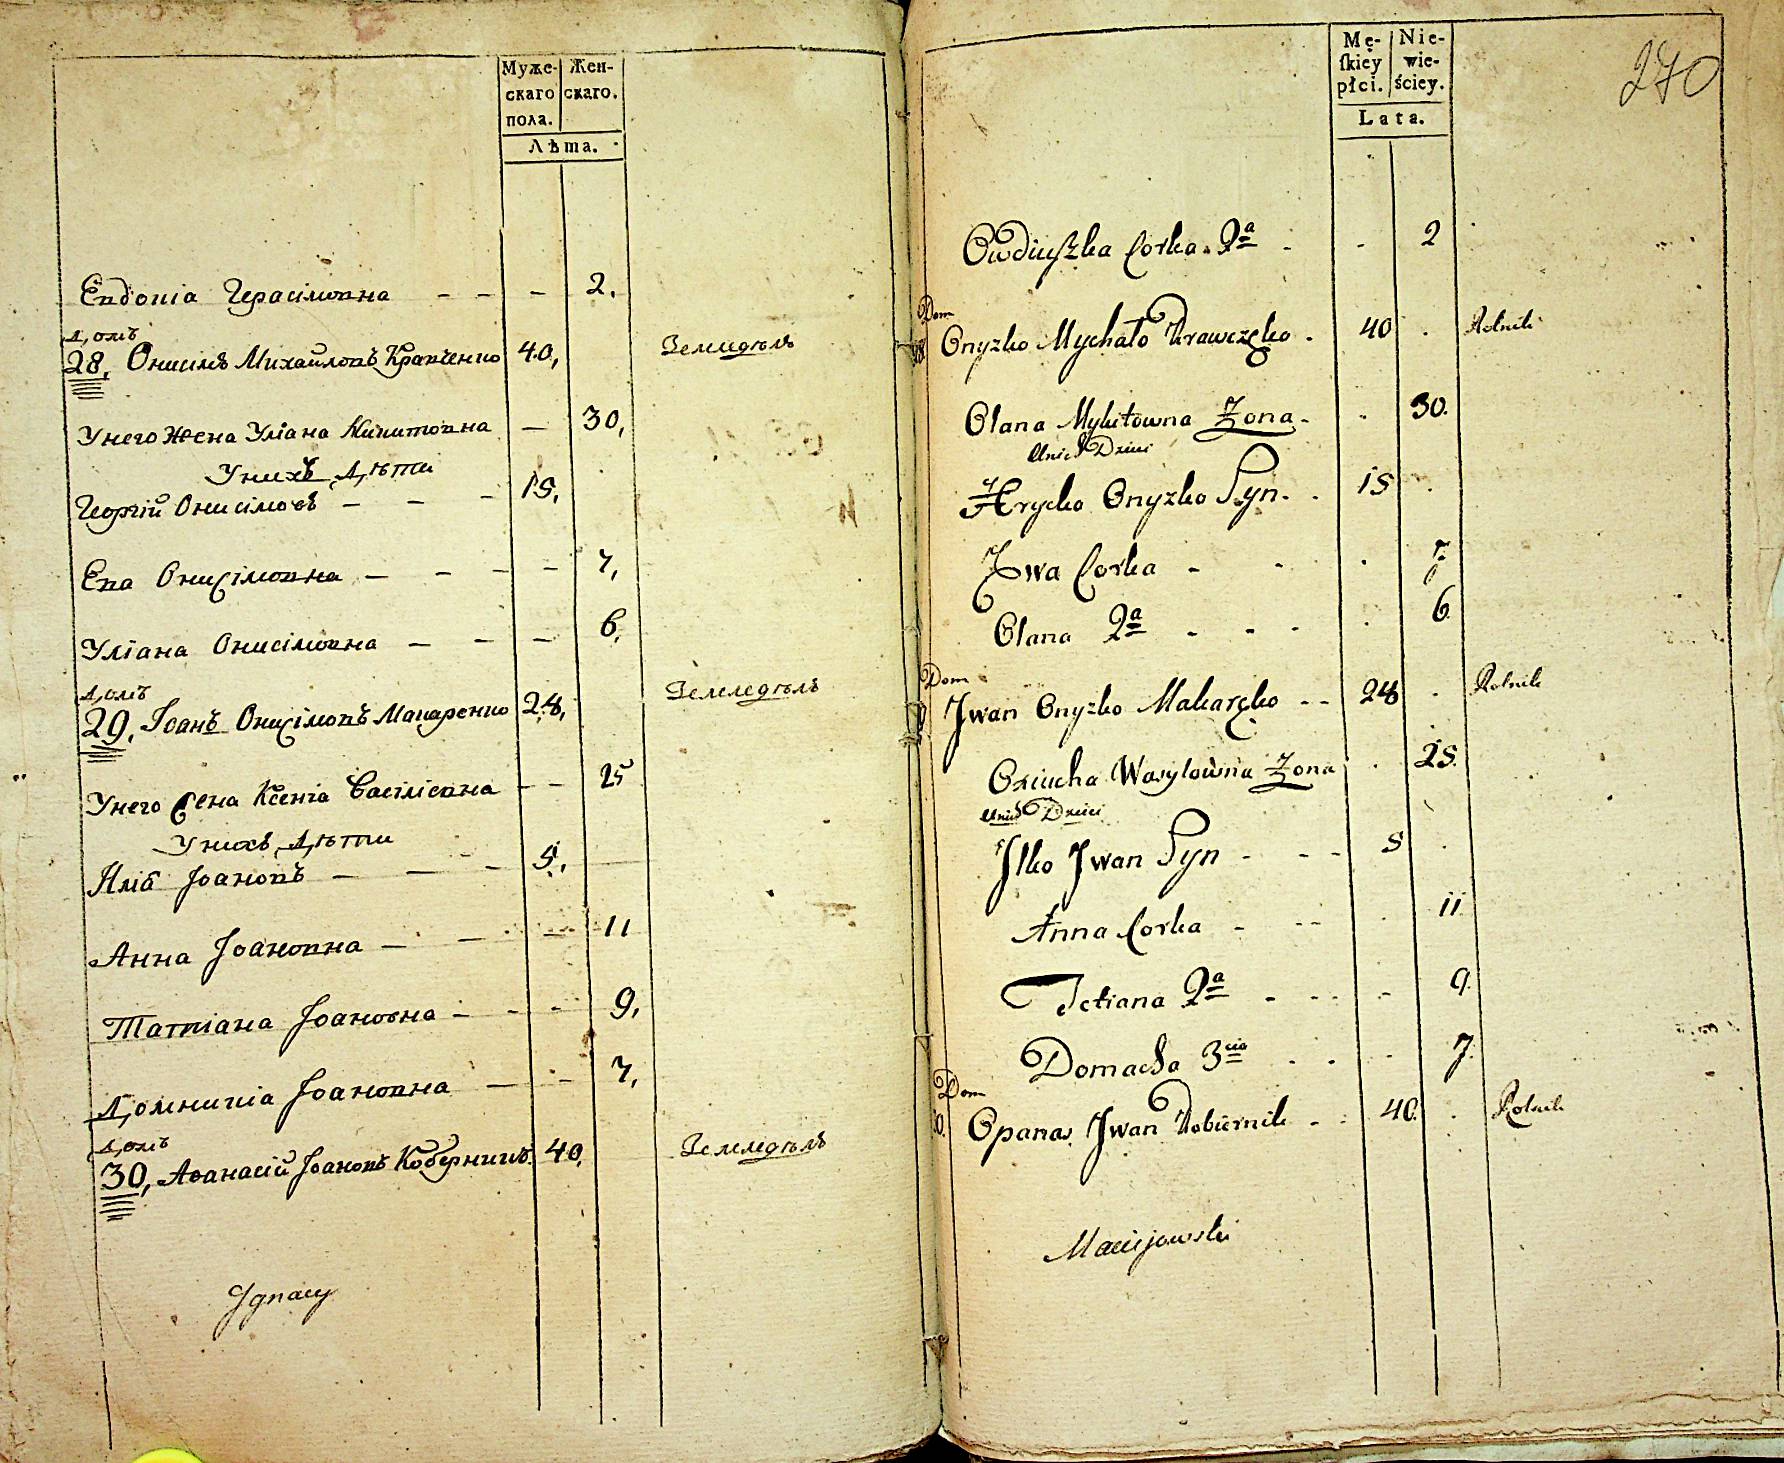 Муже- Жен-
скаго скаго.
пола.
Лѣта.
Евдокіа Герасімовна - - - 2.
Домъ
28, Онисимъ Михайловъ Кравченко 40, Земледѣлъ
Унего Жена Уліана Микитовна — 30,
Унихъ Дѣти
Георгій Онисімовъ — - - 15,
Ева Онисімовна — - - - 7,
Уліана Онисімовна — - - 6,
Домъ
29, Іоанъ Онисімовъ Макаренко 28, Земледѣлъ
Унего Жена Ксеніа Васіліевна - - 25
Унихъ Дѣти
Иліа Іоановъ — - - 5,
Анна Іоановна — - - 11
Татіана Іоановна - - - 9,
Домникіа Іоановна — - 7,
Домъ
30, Афанасій Іоановъ Коберникъ 40, Земледѣлъ
Ignacy
270
Mę- Nie-
ſkiey wie-
płci. ściey.
Lata.
Owdiuszka Corka 2ª - - 2
Dom
28 Onyzko Mychało Krawczęko . 40 . Rolnik
Olana Mykitowna Zona - . 30.
Unich Dzieci
Hrycko Onyzko Syn - . 15 .
Ewa Corka - - . 7
Olana 2ª - - - . 6
Dom
Iwan Onyzko Makaręko - - 28 . Rolnik
Oxiucha Wasylowna Zona . 25.
Unich Dzieci
Ilko Iwan Syn - - - 5 .
Anna Corka - - - . 11
Tetiana 2ª - - - - 9.
Domacha 3cia - - - 7.
Dom
30. Opanas Iwan Kobiernik - - 40. . Rolnik
Maciejowski